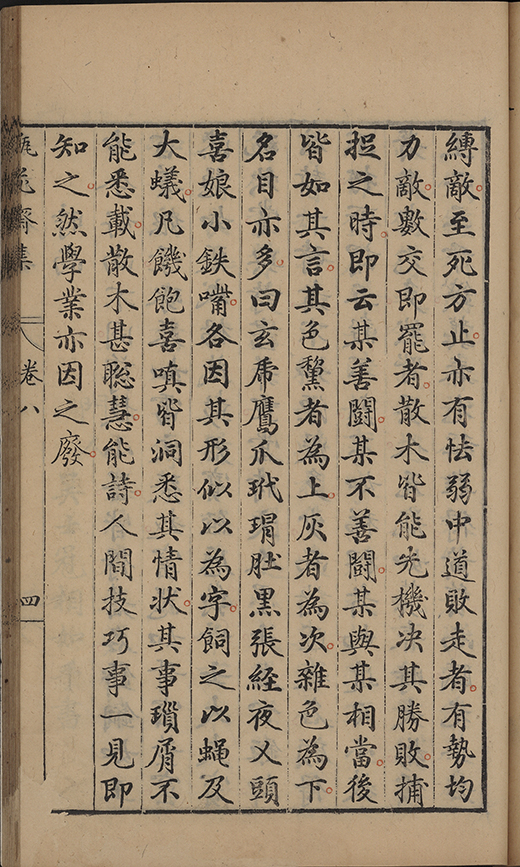 縛敵至死方止亦有怯弱中道敗走者有勢均
力敵數交即罷者散木皆能先機决其勝敗捕
捉之時即云某善鬪某不善鬪某與某相當後
皆如其言其色黧者為上灰者為次雜色為下
名目亦多曰玄虎鷹爪玳瑁肚黑張經夜乂頭
喜娘小鉄嘴各因其形似以為字飼之以蝇及
大蟻凡饑飽喜嗔皆洞悉其情状其事瑣屑不
能悉載散木甚聡慧能詩人間技巧事一見即
知之然學業亦因之廢
齋集
卷八
四